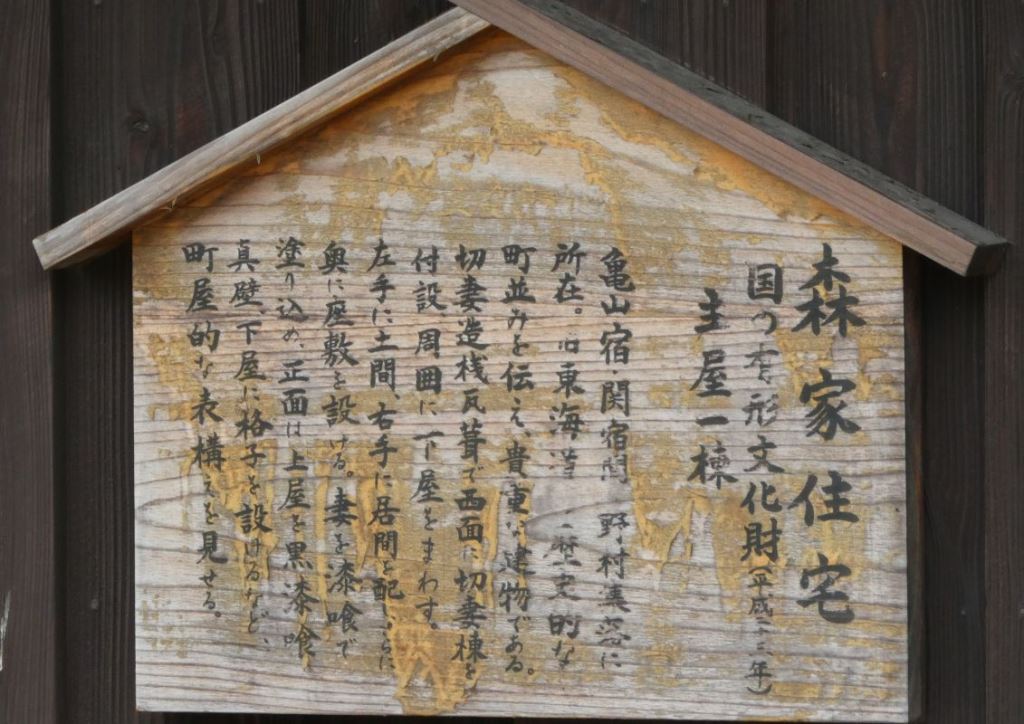 森家住宅
国の有形文化財(平成二十三年)
主屋一棟
亀山宿・関宿間 野村集落に
所在。旧東海道 歴史的な
町並みを伝え、貴重な建物である。
切妻造桟瓦葺で西面に切妻棟を
付設、周囲に下屋をまわす。
左手に土間、右手に居間を配 さらに
奥に座敷を設ける。妻を漆喰で
塗り込め、正面は上屋を黒漆喰
真壁、下屋に格子を設けるなど、
町屋的な表構えを見せる。